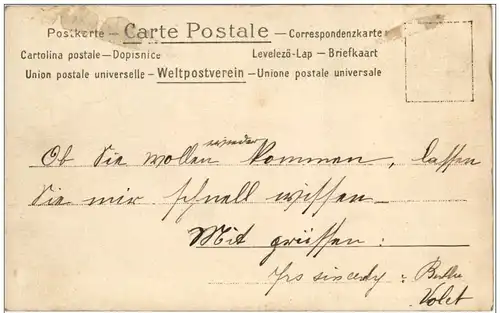 Postkarte — Carte Postale — Correspondenzkarte
Cartolina postale — Dopisnice Levelező-Lap — Briefkaart
Union postale universelle — Weltpostverein — Unione postale universale
wieder
Ob Sie wollen kommen, lassen
Sie mir schnell wissen
Mit grüssen:
Yrs sincerely: 
Volet